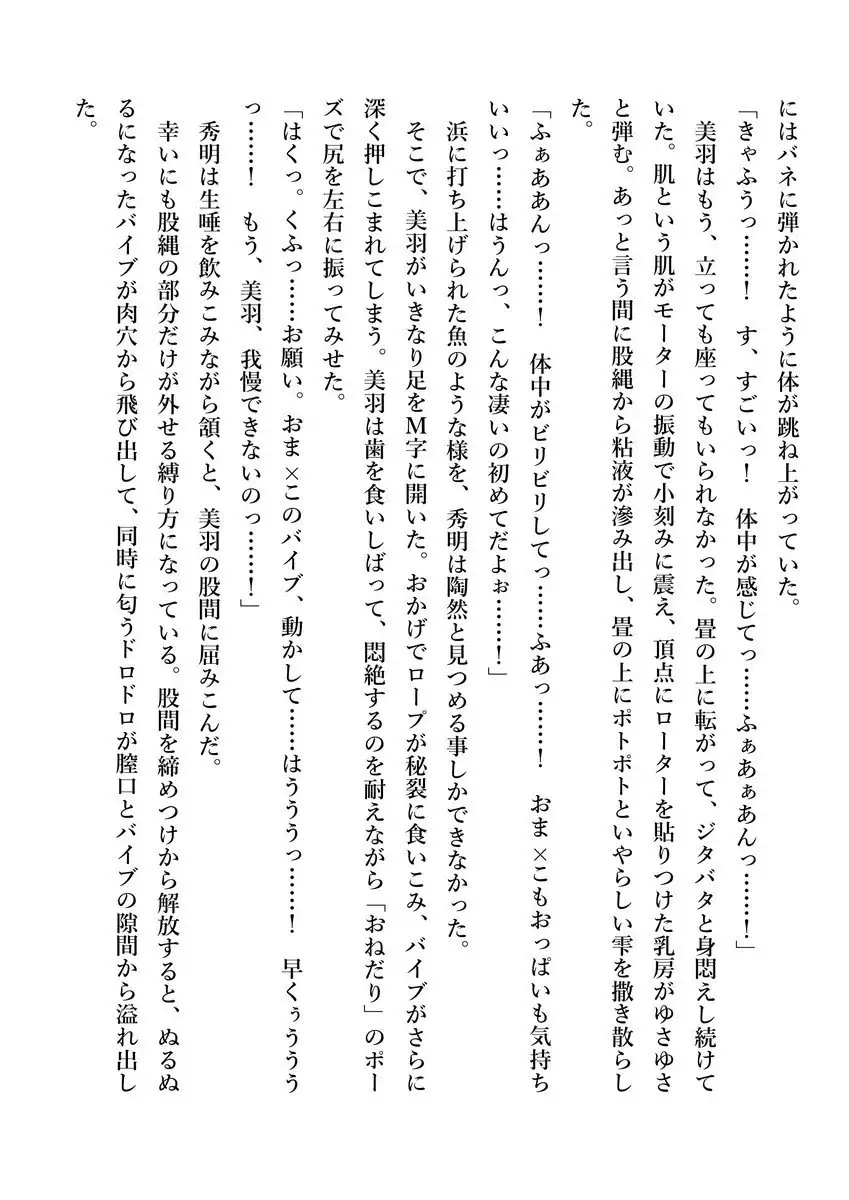 にはバネに弾かれたように体が跳ね上がっていた。
「きゃふうっ……！　す、すごいっ！　体中が感じてっ……ふぁあぁあんっ……！」
美羽はもう、立っても座ってもいられなかった。畳の上に転がって、ジタバタと身悶えし続けて
いた。肌という肌がモーターの振動で小刻みに震え、頂点にローターを貼りつけた乳房がゆさゆさ
と弾む。あっと言う間に股縄から粘液が滲み出し、畳の上にポトポトといやらしい雫を撒き散らし
た。
「ふぁああんっ……！　体中がビリビリしてっ……ふあっ……！　おま×こもおっぱいも気持ち
いいっ……はうんっ、こんな凄いの初めてだよぉ……！」
浜に打ち上げられた魚のような様を、秀明は陶然と見つめる事しかできなかった。
そこで、美羽がいきなり足をＭ字に開いた。おかげでロープが秘裂に食いこみ、バイブがさらに
深く押しこまれてしまう。美羽は歯を食いしばって、悶絶するのを耐えながら「おねだり」のポー
ズで尻を左右に振ってみせた。
「はくっ。くふっ……お願い。おま×このバイブ、動かして……はうううっ……！　早くぅううう
っ……！　もう、美羽、我慢できないのっ……！」
秀明は生唾を飲みこみながら頷くと、美羽の股間に屈みこんだ。
幸いにも股縄の部分だけが外せる縛り方になっている。股間を締めつけから解放すると、ぬるぬ
るになったバイブが肉穴から飛び出して、同時に匂うドロドロが膣口とバイブの隙間から溢れ出し
た。